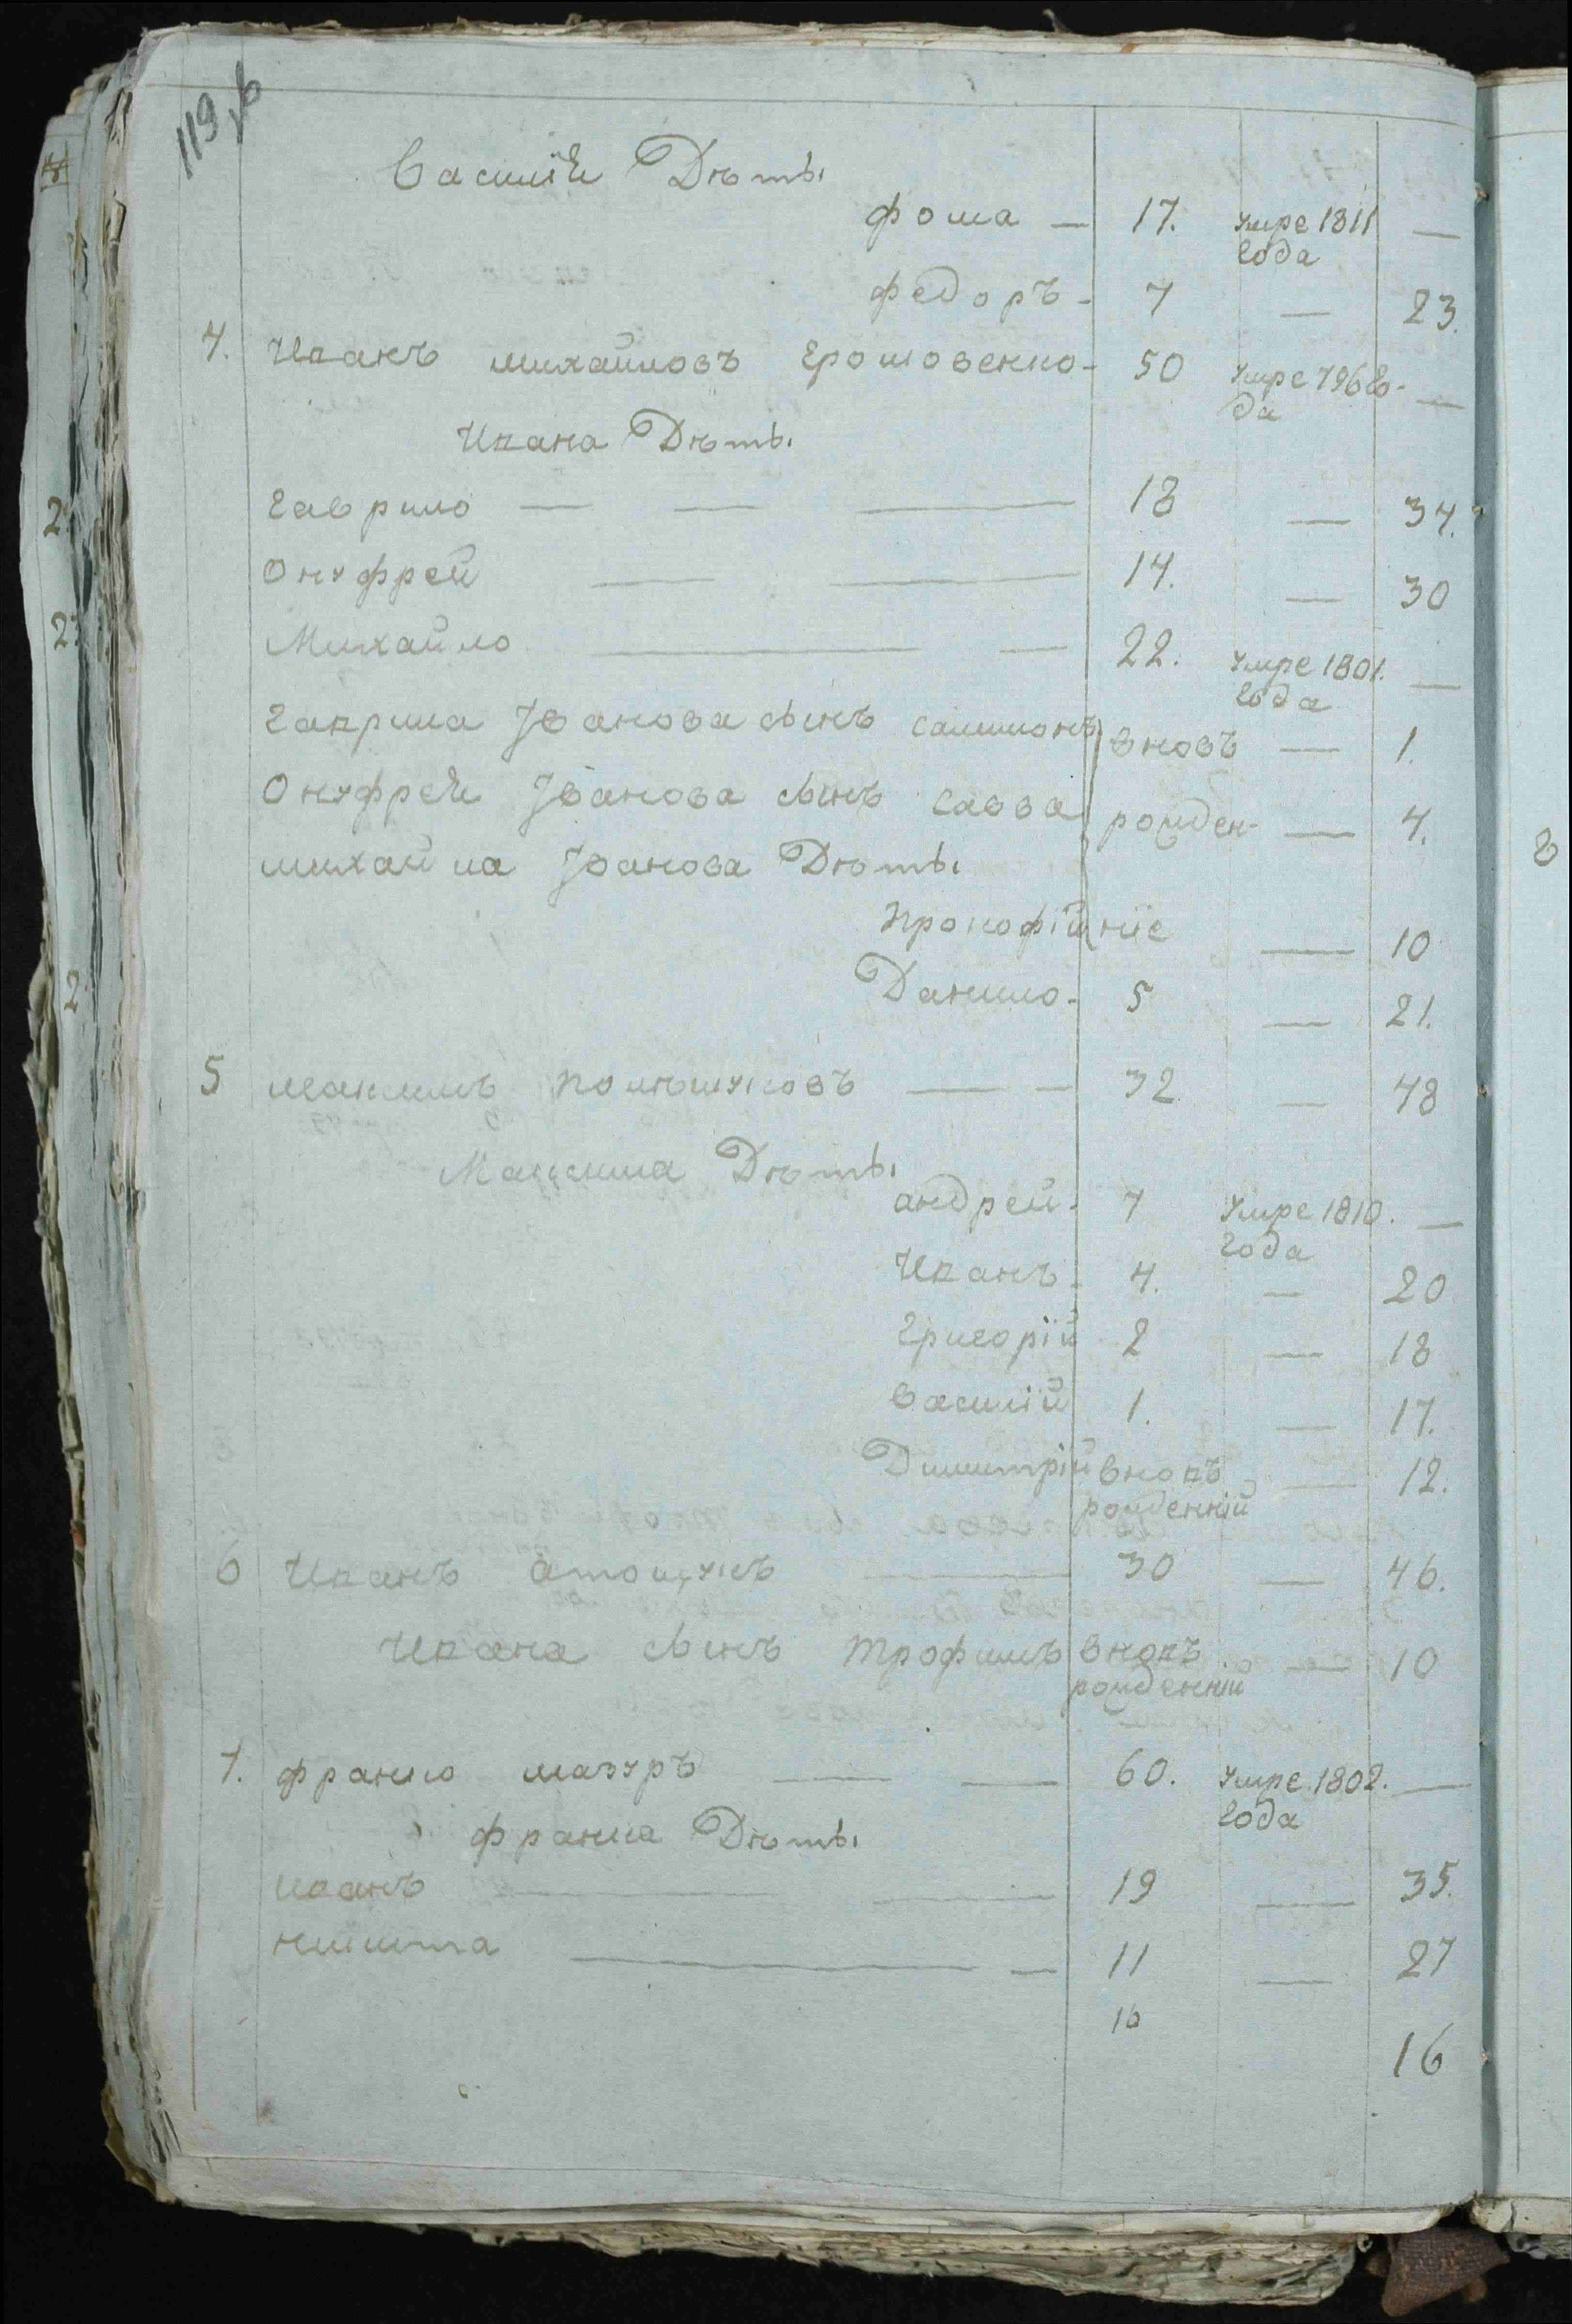 119 об
Василія Дѣти
фома — 17. умре 1811 —
года
федоръ - 7 — 23.
4. Иванъ михайловъ Громовенко - 50 умре 796 го- —
да
Ивана Дѣти
Гаврило — — — 18 — 34.
Онуфрей — — 14. — 30
Михайло — — 22. умре 1801. —
года
Гаврила Іванова сынъ самилонъ вновь — 1.
Онуфрея Іванова сынъ савва рожден- — 4.
михайла Іванова Дѣти
Прокофій ніе — 10
Данило - 5 — 21.
5 максимъ полѣшуковъ — — 32 — 48
Максима Дѣти
андрей - 7 умре 1810. —
года
Иванъ - 4. — 20
Григорій 2 — 18
василій 1. — 17.
Димитрій вновь — 12.
рожденній
6 Иванъ — 30 — 46.
Ивана сынъ трофимъ вновь — 10
рожденній
7. франко мазуръ — — 60. умре 1802. —
года
франка Дѣти
иванъ — — 19 — 35.
никита — — 11 — 27
16
16